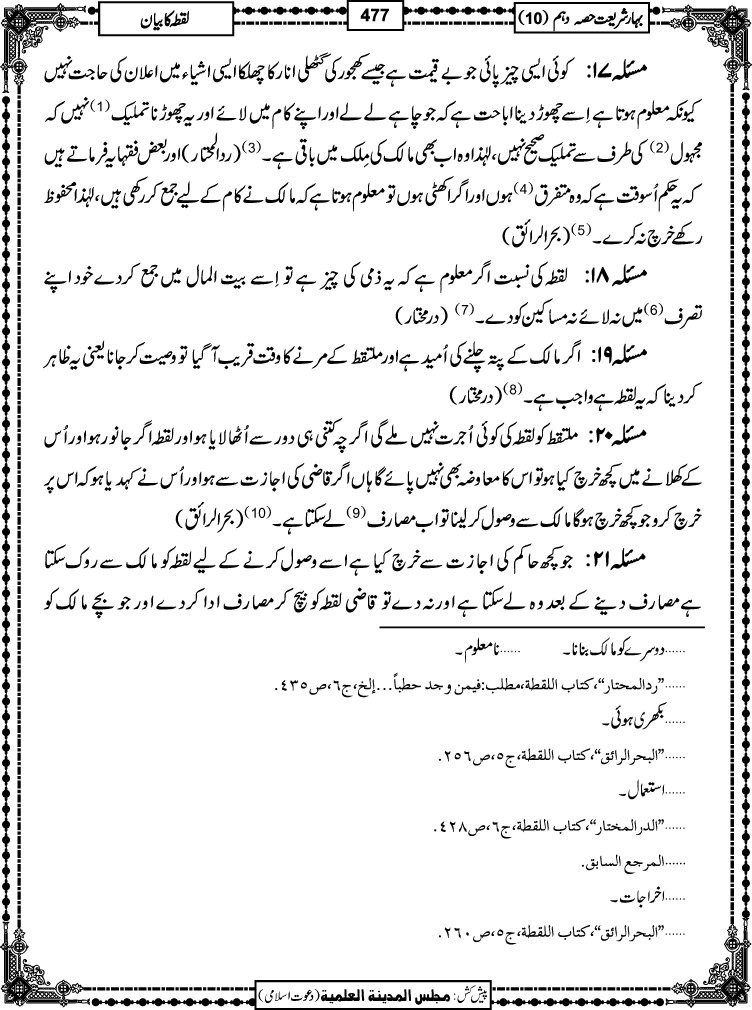 بہارِ شریعت حصہ دہم (10)
477
لقطہ کا بیان
مسئلہ ۱۷: کوئی ایسی چیز پائی جو بے قیمت ہے جیسے کھجور کی گٹھلی انار کا چھلکا ایسی اشیاء میں اعلان کی حاجت نہیں
کیونکہ معلوم ہوتا ہے اِسے چھوڑ دینا اباحت ہے کہ جو چاہے لے لے اور اپنے کام میں لائے اور یہ چھوڑنا تملیک (1) نہیں کہ
مجہول (2) کی طرف سے تملیک صحیح نہیں، لہٰذا وہ اب بھی مالک کی مِلک میں باقی ہے۔ (3) (ردالمحتار) اور بعض فقہا یہ فرماتے ہیں
کہ یہ حکم اُسوقت ہے کہ وہ متفرق (4) ہوں اور اگر اکھٹی ہوں تو معلوم ہوتا ہے کہ مالک نے کام کے لیے جمع کر رکھی ہیں، لہٰذا محفوظ
رکھے خرچ نہ کرے۔ (5) (بحرالرائق)
مسئلہ ۱۸: لقطہ کی نسبت اگر معلوم ہے کہ یہ ذمی کی چیز ہے تو اِسے بیت المال میں جمع کر دے خود اپنے
تصرف (6) میں نہ لائے نہ مساکین کو دے۔ (7) (درمختار)
مسئلہ ۱۹: اگر مالک کے پتہ چلنے کی اُمید ہے اور ملتقط کے مرنے کا وقت قریب آ گیا تو وصیت کر جانا یعنی یہ ظاہر
کر دینا کہ یہ لقطہ ہے واجب ہے۔ (8) (درمختار)
مسئلہ ۲۰: ملتقط کو لقطہ کی کوئی اُجرت نہیں ملے گی اگرچہ کتنی ہی دور سے اُٹھا لایا ہو اور لقطہ اگر جانور ہو اور اُس
کے کھلانے میں کچھ خرچ کیا ہو تو اس کا معاوضہ بھی نہیں پائے گا ہاں اگر قاضی کی اجازت سے ہو اور اُس نے کہدیا ہو کہ اس پر
خرچ کرو جو کچھ خرچ ہوگا مالک سے وصول کر لینا تو اب مصارف (9) لے سکتا ہے۔ (10) (بحرالرائق)
مسئلہ ۲۱: جو کچھ حاکم کی اجازت سے خرچ کیا ہے اسے وصول کرنے کے لیے لقطہ کو مالک سے روک سکتا
ہے مصارف دینے کے بعد وہ لے سکتا ہے اور نہ دے تو قاضی لقطہ کو بیچ کر مصارف ادا کر دے اور جو بچے مالک کو
......دوسرے کو مالک بنانا۔ ......نامعلوم۔
......”ردالمحتار“، کتاب اللقطة، مطلب: فیمن وجد حطباً...إلخ، ج٦، ص٤٣٥.
......بکھری ہوئی۔
......”البحرالرائق“، کتاب اللقطة، ج٥، ص٢٥٦.
......استعمال۔
......”الدرالمختار“، کتاب اللقطة، ج٦، ص٤٢٨.
......المرجع السابق.
......اخراجات۔
......”البحرالرائق“، کتاب اللقطة، ج٥، ص٢٦٠.
پیش کش: مجلس المدینة العلمیة (دعوت اسلامی)